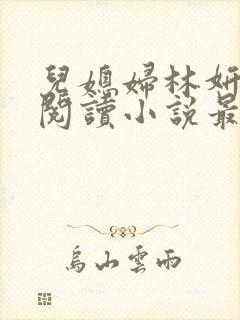 兒媳婦林妍
閱讀小說最
烏山雲雨